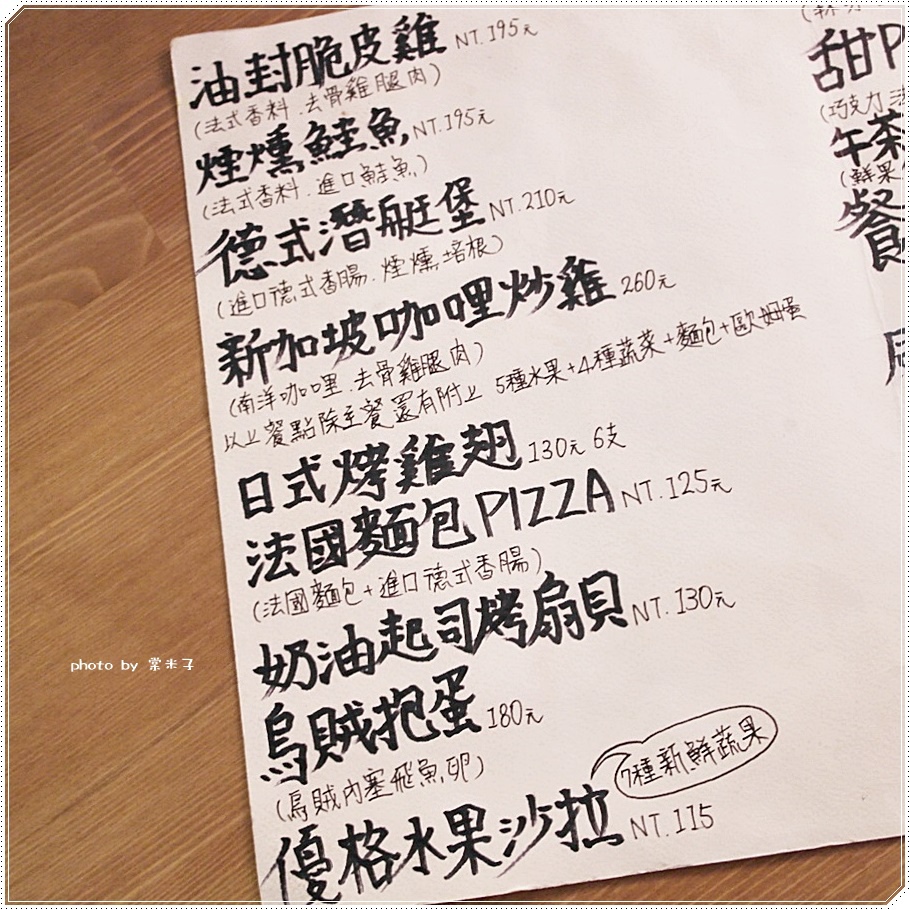 油封脆皮雞 NT.195元
(法式香料.去骨雞腿肉)
煙燻鮭魚 NT.195元
(法式香料.進口鮭魚)
德式潛艇堡 NT.210元
(進口德式香腸.煙燻培根)
新加坡咖哩炒雞 260元
(南洋咖哩.去骨雞腿肉)
以上餐點除主餐還有附上 5種水果+4種蔬菜+麵包+歐姆蛋
日式烤雞翅 130元 6支
法國麵包PIZZA NT.125元
(法國麵包+進口德式香腸)
奶油起司烤扇貝 NT.130元
烏賊抱蛋 180元
(烏賊內塞飛魚卵)
7種新鮮蔬果
優格水果沙拉 NT.115
甜P
(巧克力
午茶
(鮮果
餐
photo by 棠米子